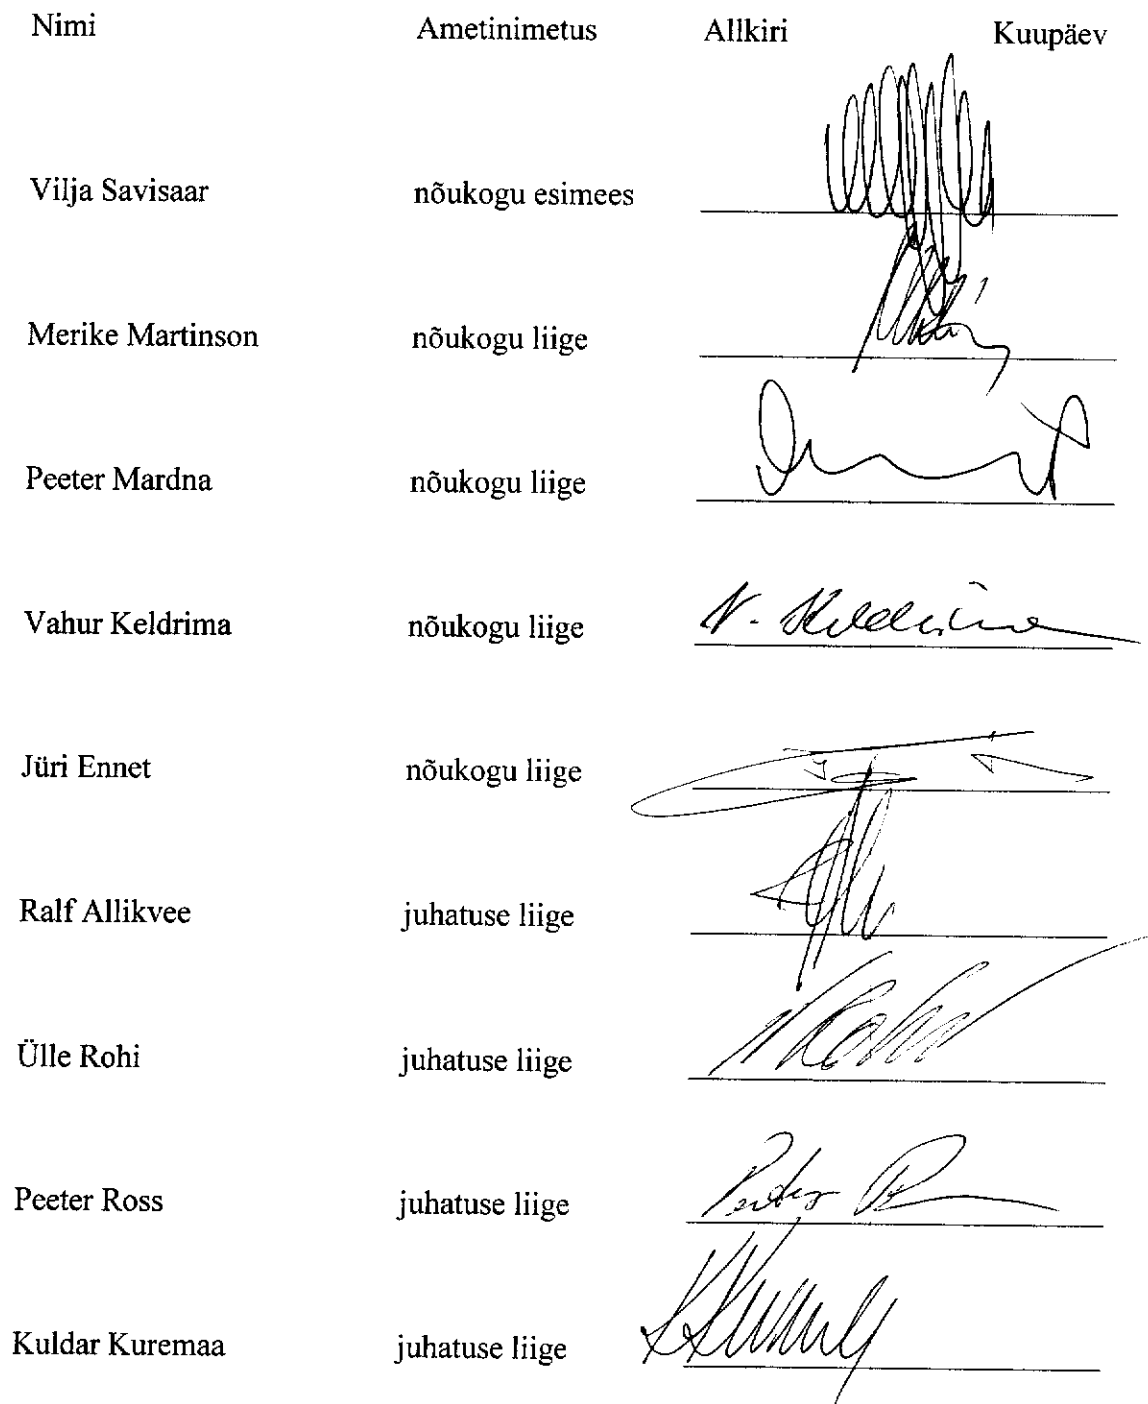 Nimi Ametinimetus Allkiri Kuupäev
Vilja Savisaar nõukogu esimees
Merike Martinson nõukogu liige
Peeter Mardna nõukogu liige
Vahur Keldrima nõukogu liige
Jüri Ennet nõukogu liige
Ralf Allikvee juhatuse liige
Ülle Rohi juhatuse liige
Peeter Ross juhatuse liige
Kuldar Kuremaa juhatuse liige